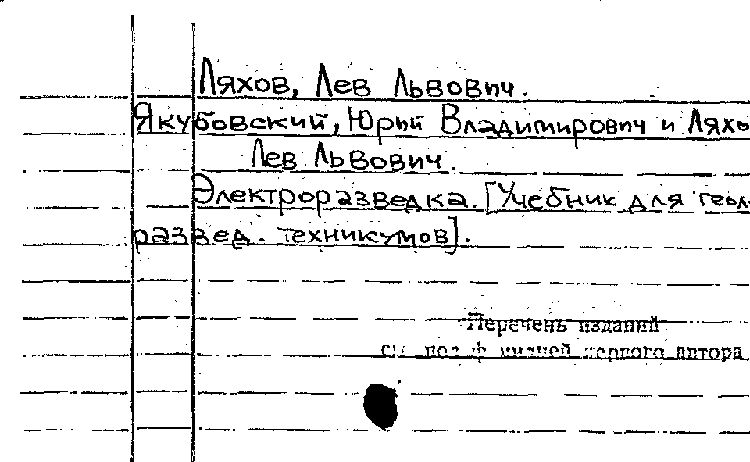 Ляхов, Лев Львович.
Якубовский, Юрий Владимирович и Ляхо
Лев Львович.
Электроразведка. [Учебник для геол.
развед. техникумов].
Перечень изданий
см. под ф первого автора